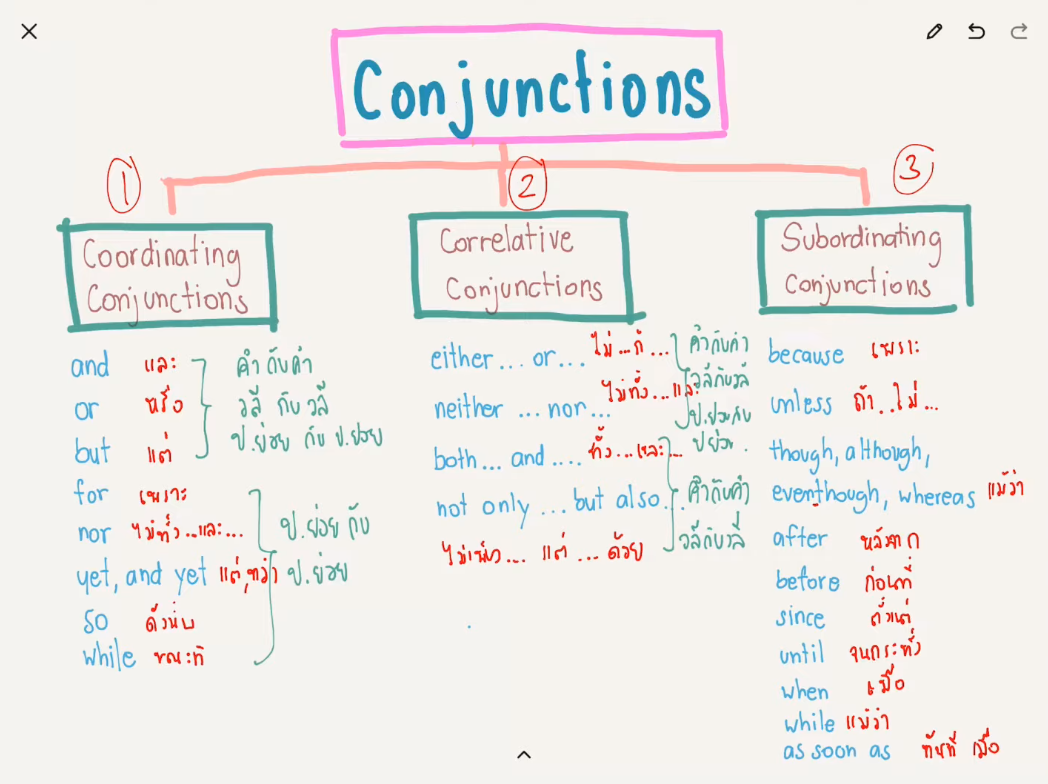 Conjunctions
1
2
3
Coordinating
Conjunctions
and และ
or หรือ
but แต่
คำกับคำ
วลี กับ วลี
ป.ย่อย กับ ป.ย่อย
for เพราะ
nor ไม่ทั้ง...และ...
yet, and yet แต่,ทว่า
so ดังนั้น
while ขณะที่
ป.ย่อย กับ
ป.ย่อย
Correlative
Conjunctions
either... or... ไม่...ก็...
neither ... nor... ไม่ทั้ง...และ
คำกับคำ
วลีกับวลี
ป.ย่อยกับ
ป.ย่อย.
both... and .... ทั้ง...และ...
not only ... but also...
ไม่เพียง... แต่ ... ด้วย
คำกับคำ
วลีกับวลี
Subordinating
Conjunctions
because เพราะ
unless ถ้า..ไม่...
though, although,
eventhough, whereas แม้ว่า
after หลังจาก
before ก่อนที่
since ตั้งแต่
until จนกระทั่ง
when เมื่อ
while แม้ว่า
as soon as ทันที เมื่อ